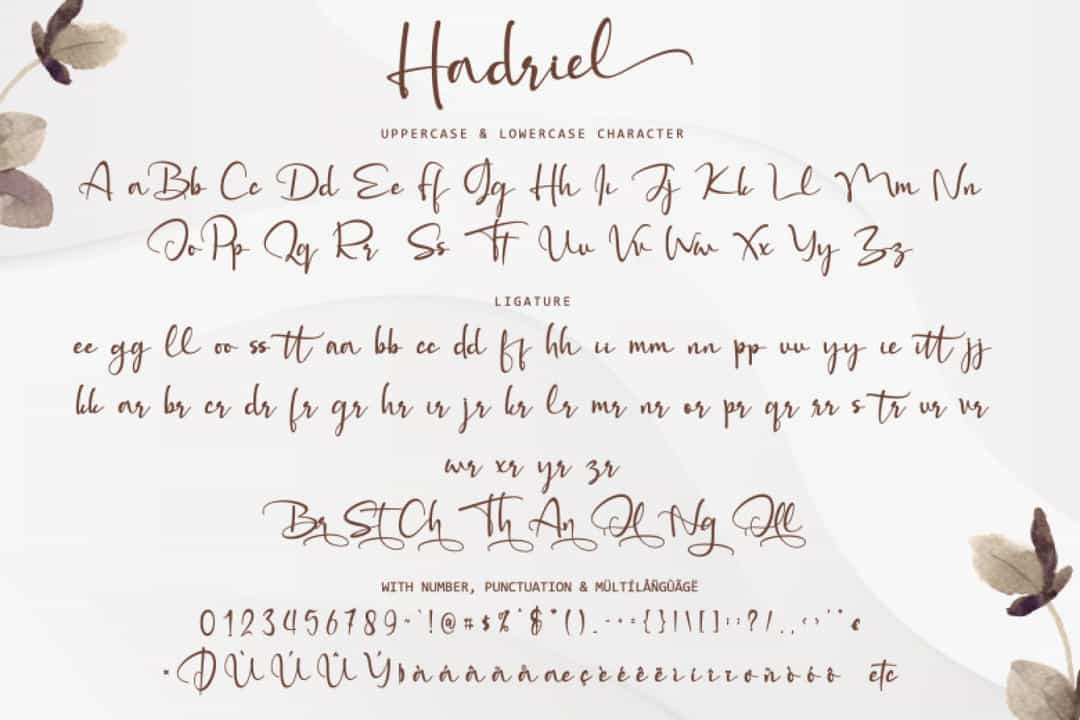 Hadriel
UPPERCASE & LOWERCASE CHARACTER
A a Bb Cc Dd Ee Ff Gg Hh Ii Jj Kk Ll Mm Nn
Oo Pp Qq Rr Ss Tt Uu Vv Ww Xx Yy Zz
LIGATURE
ee gg ll oo ss tt aa bb cc dd ff hh ii mm nn pp uu yy ie itt jj
kk ar br cr dr fr gr hr ir jr kr lr mr nr or pr qr rr s tr ur vr
wr xr yr zr
Br St Ch Th An Ng
WITH NUMBER, PUNCTUATION & MÜLTÍLÅÑGÜÃGË
0123456789 ! @ # $ % ( ) { } | \ [ ] : ; ? / . ,
etc